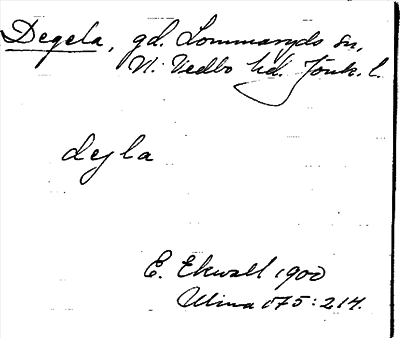 Degela, gd. Lommaryds sn,
N. Vedbo hd. Jönk. l.
dejla
E. Ekwall 1900
Ulma 175:214.